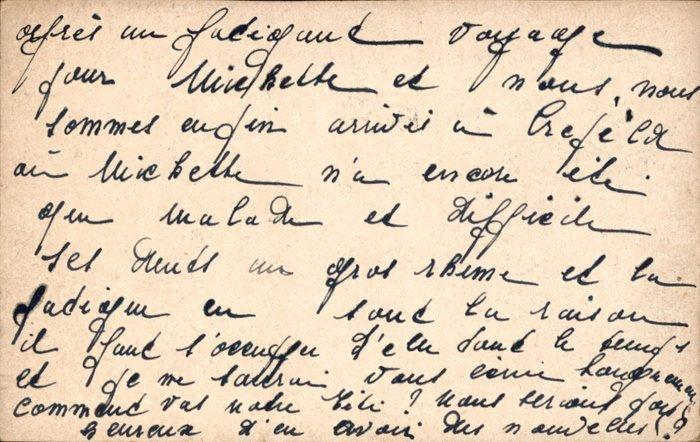 après un fatigant voyage
pour Michette et nous, nous
sommes enfin arrivés à Crefeld
où Michette n'a encore été
que malade et difficile
ses dents un gros rhume et la
fatigue en sont la raison
il faut s'occuper d'elle tout le temps
et je ne saurai vous écrire longuement
comment vas notre Titi? nous serions
heureux d'en avoir des nouvelles?